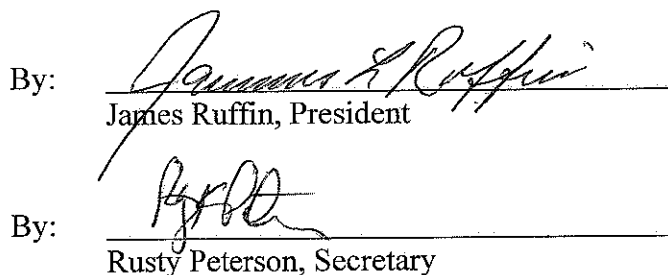 By: James L Ruffin
James Ruffin, President
By:
Rusty Peterson, Secretary